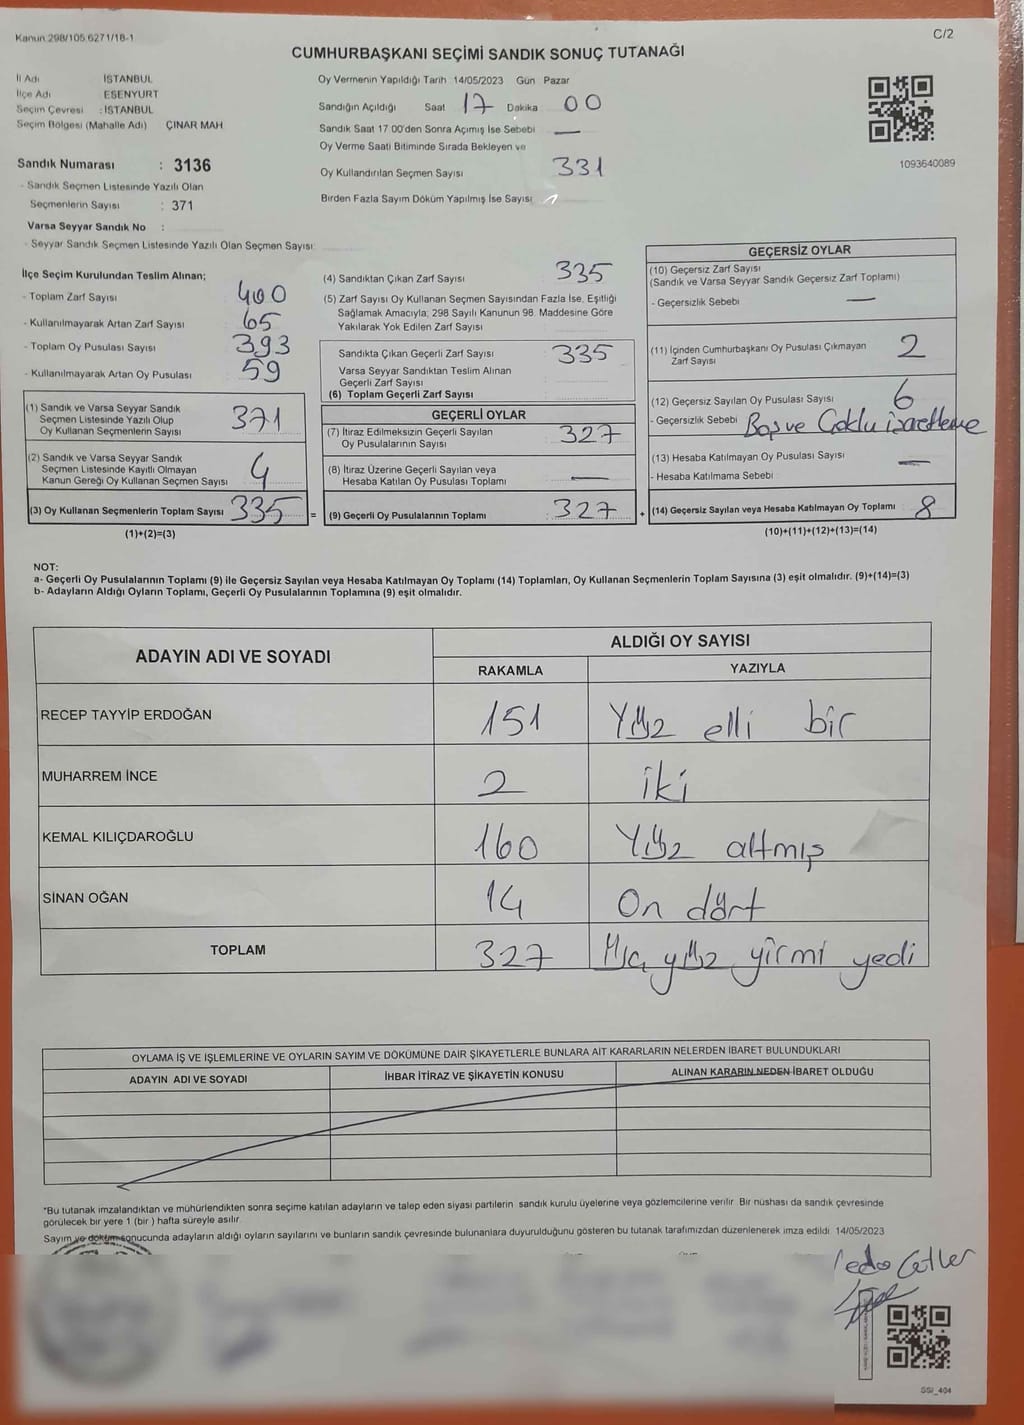 Kanun 298/105.6271/18-1
C/2
CUMHURBAŞKANI SEÇİMİ SANDIK SONUÇ TUTANAĞI
İl Adı : İSTANBUL
İlçe Adı : ESENYURT
Seçim Çevresi : İSTANBUL
Seçim Bölgesi (Mahalle Adı) ÇINAR MAH
Sandık Numarası : 3136
- Sandık Seçmen Listesinde Yazılı Olan
Seçmenlerin Sayısı : 371
Varsa Seyyar Sandık No :
- Seyyar Sandık Seçmen Listesinde Yazılı Olan Seçmen Sayısı:
Oy Vermenin Yapıldığı Tarih 14/05/2023 Gün Pazar
Sandığın Açıldığı Saat 17 Dakika 00
Sandık Saat 17:00'den Sonra Açımış İse Sebebi —
Oy Verme Saati Bitiminde Sırada Bekleyen ve
Oy Kullandırılan Seçmen Sayısı 331
Birden Fazla Sayım Döküm Yapılmış İse Sayısı
1093640089
İlçe Seçim Kurulundan Teslim Alınan;
- Toplam Zarf Sayısı 400
- Kullanılmayarak Artan Zarf Sayısı 65
- Toplam Oy Pusulası Sayısı 393
- Kullanılmayarak Artan Oy Pusulası 59
(1) Sandık ve Varsa Seyyar Sandık
Seçmen Listesinde Yazılı Olup
Oy Kullanan Seçmenlerin Sayısı 371
(2) Sandık ve Varsa Seyyar Sandık
Seçmen Listesinde Kayıtlı Olmayan
Kanun Gereği Oy Kullanan Seçmen Sayısı 4
(3) Oy Kullanan Seçmenlerin Toplam Sayısı 335
(1)+(2)=(3)
(4) Sandıktan Çıkan Zarf Sayısı 335
(5) Zarf Sayısı Oy Kullanan Seçmen Sayısından Fazla İse, Eşitliği
Sağlamak Amacıyla; 298 Sayılı Kanunun 98. Maddesine Göre
Yakılarak Yok Edilen Zarf Sayısı
Sandıkta Çıkan Geçerli Zarf Sayısı 335
Varsa Seyyar Sandıktan Teslim Alınan
Geçerli Zarf Sayısı
(6) Toplam Geçerli Zarf Sayısı
GEÇERLİ OYLAR
(7) İtiraz Edilmeksizin Geçerli Sayılan
Oy Pusulalarının Sayısı 327
(8) İtiraz Üzerine Geçerli Sayılan veya
Hesaba Katılan Oy Pusulası Toplamı —
= (9) Geçerli Oy Pusulalarının Toplamı : 327
GEÇERSİZ OYLAR
(10) Geçersiz Zarf Sayısı
(Sandık ve Varsa Seyyar Sandık Geçersiz Zarf Toplamı)
- Geçersizlik Sebebi —
(11) İçinden Cumhurbaşkanı Oy Pusulası Çıkmayan
Zarf Sayısı 2
(12) Geçersiz Sayılan Oy Pusulası Sayısı 6
- Geçersizlik Sebebi Boş ve Çoklu işaretleme
(13) Hesaba Katılmayan Oy Pusulası Sayısı —
- Hesaba Katılmama Sebebi
+ (14) Geçersiz Sayılan veya Hesaba Katılmayan Oy Toplamı 8
(10)+(11)+(12)+(13)=(14)
NOT:
a- Geçerli Oy Pusulalarının Toplamı (9) ile Geçersiz Sayılan veya Hesaba Katılmayan Oy Toplamı (14) Toplamları, Oy Kullanan Seçmenlerin Toplam Sayısına (3) eşit olmalıdır. (9)+(14)=(3)
b- Adayların Aldığı Oyların Toplamı, Geçerli Oy Pusulalarının Toplamına (9) eşit olmalıdır.
ADAYIN ADI VE SOYADI
ALDIĞI OY SAYISI
RAKAMLA YAZIYLA
RECEP TAYYİP ERDOĞAN 151 Yüz elli bir
MUHARREM İNCE 2 iki
KEMAL KILIÇDAROĞLU 160 Yüz altmış
SİNAN OĞAN 14 On dört
TOPLAM 327 Üç yüz yirmi yedi
OYLAMA İŞ VE İŞLEMLERİNE VE OYLARIN SAYIM VE DÖKÜMÜNE DAİR ŞİKAYETLERLE BUNLARA AİT KARARLARIN NELERDEN İBARET BULUNDUKLARI
ADAYIN ADI VE SOYADI İHBAR İTİRAZ VE ŞİKAYETİN KONUSU ALINAN KARARIN NEDEN İBARET OLDUĞU
*Bu tutanak imzalandıktan ve mühürlendikten sonra seçime katılan adayların ve talep eden siyasi partilerin sandık kurulu üyelerine veya gözlemcilerine verilir. Bir nüshası da sandık çevresinde
görülecek bir yere 1 (bir ) hafta süreyle asılır.
Sayım ve döküm sonucunda adayların aldığı oyların sayılarını ve bunların sandık çevresinde bulunanlara duyurulduğunu gösteren bu tutanak tarafımızdan düzenlenerek imza edildi. 14/05/2023
SSI_404